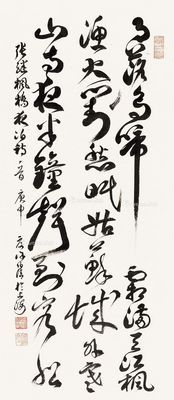 月落烏啼霜滿天江楓
漁火對愁眠姑蘇城外寒
山寺夜半鐘聲到客船
張繼楓橋夜泊詩一首 庚申 於上海